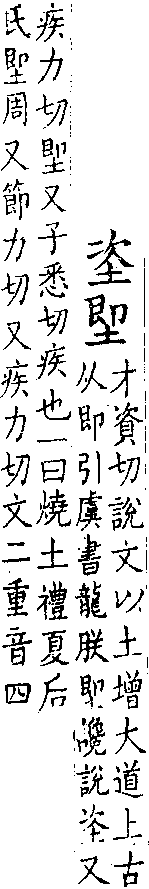 垐堲
才資切說文以土增大道上古
从即引虞書龍朕堲讒說垐又
疾力切堲又子悉切疾也一曰燒土禮夏后
氏堲周又節力切又疾力切文二重音四